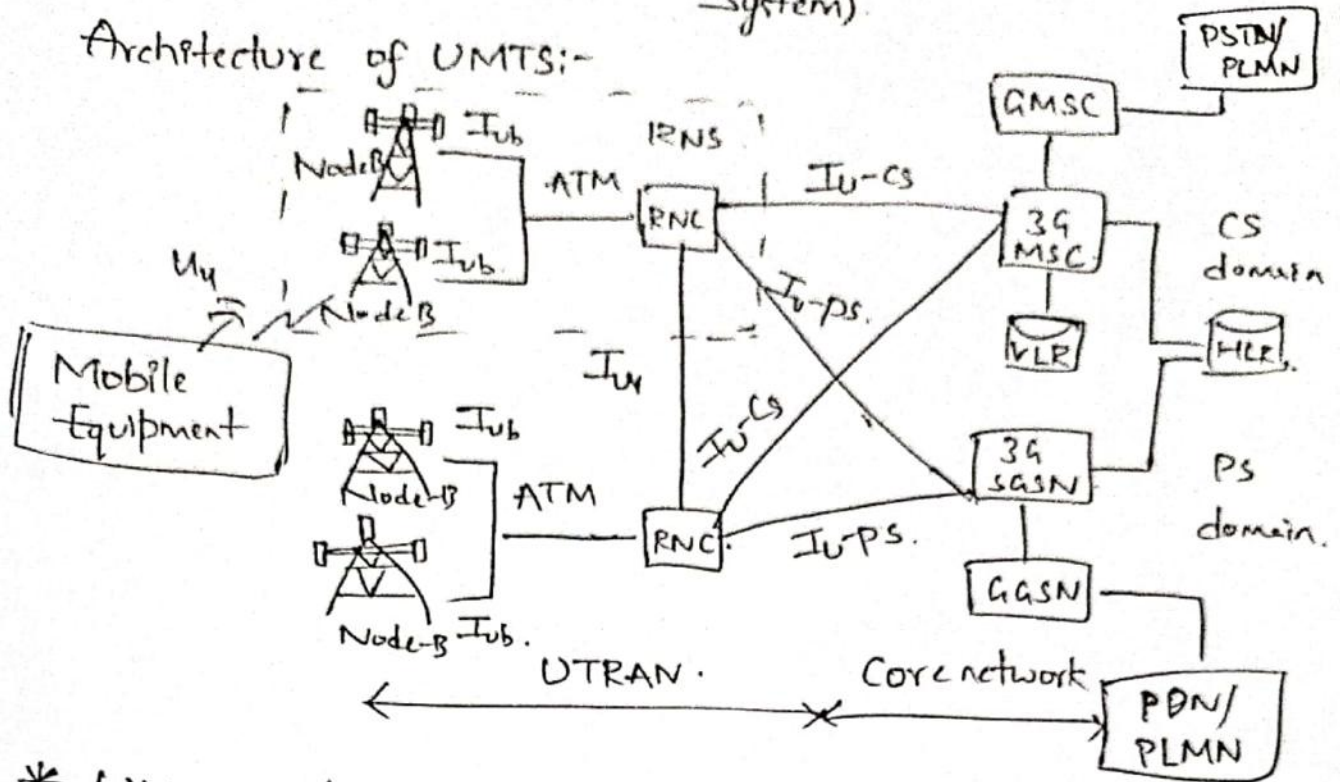 System).
Architecture of UMTS:-
PSTN/
PLMN
GMSC
Iub
NodeB
RNS
ATM
RNC
Iu-cs
3G
MSC
CS
domain
Iub
NodeB
Uu
Iu-ps.
VLR
HLR.
Mobile
Equipment
Iur
Iu-cs
Iub
Node-B
ATM
3G
SGSN
PS
domain.
RNC.
Iu-ps.
GGSN
Node-B
Iub.
UTRAN.
Core network
PDN/
PLMN